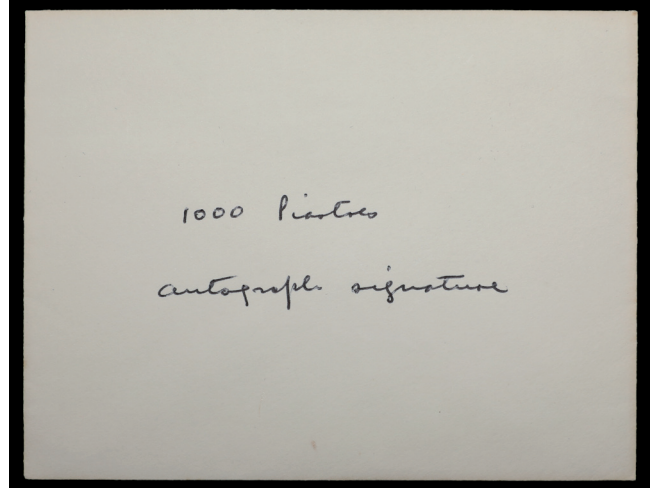 1000 Piastres
autograph signature